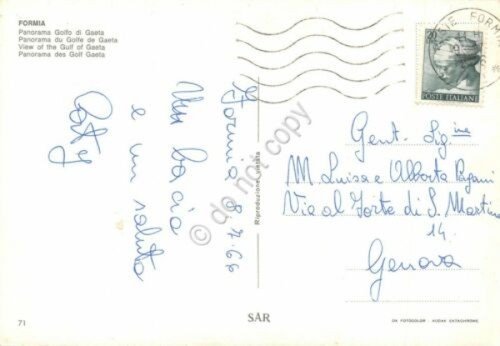 FORMIA
Panorama Golfo di Gaeta
Panorama du Golfe de Gaeta
View of the Gulf of Gaeta
Panorama des Golf Gaeta
Formia 8 7.66
Un bacio
e un saluto
POSTE ITALIANE
FORMIA
Gent. Sig.ine
M. Luisa e Alberta Pagani
Via al Forte di S. Martino
14.
Genova
Riproduzione vietata
© do not copy
71
SAR
DA FOTOCOLOR - KODAK EKTACHROME